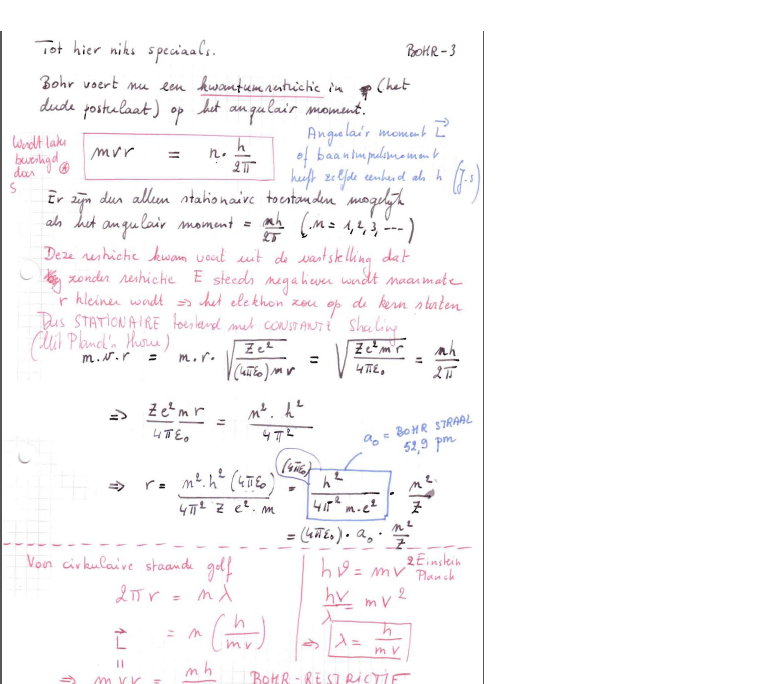 Tot hier niks speciaals.
BOHR-3
Bohr voert nu een kwantumrestrictie in (het
dude postulaat) op het angulair moment.
Wordt later
bevestigd
door
S
mvr = n. h/2π
Angulair moment L
of baanimpulsmoment
heeft zelfde eenheid als h (J.s)
Er zijn dus alleen stationaire toestanden mogelijk
als het angulair moment = nh/2π (n = 1, 2, 3, ---)
Deze restrictie kwam voort uit de vaststelling dat
zonder restrictie E steeds negatiever wordt naarmate
r kleiner wordt => het elektron zou op de kern storten
Dus STATIONAIRE toestand met CONSTANTE straling
(Uit Planck's theorie)
m.v.r = m.r. √(Ze²/(4πε₀)mr) = √(Ze²mr/4πε₀) = nh/2π
=> Ze²mr/4πε₀ = n².h²/4π²
a₀ = BOHR STRAAL
52,9 pm
=> r = n².h²(4πε₀)/4π² Z e².m = (4πε₀) h²/4π² m.e² . n²/Z
= (4πε₀) . a₀ . n²/Z
Voor cirkulaire staande golf
2πr = nλ
L = n (h/mv)
=> mvr = nh
BOHR-RESTRICTIE
hν = mv² Einstein
Planck
hv/λ = mv²
=> λ = h/mv